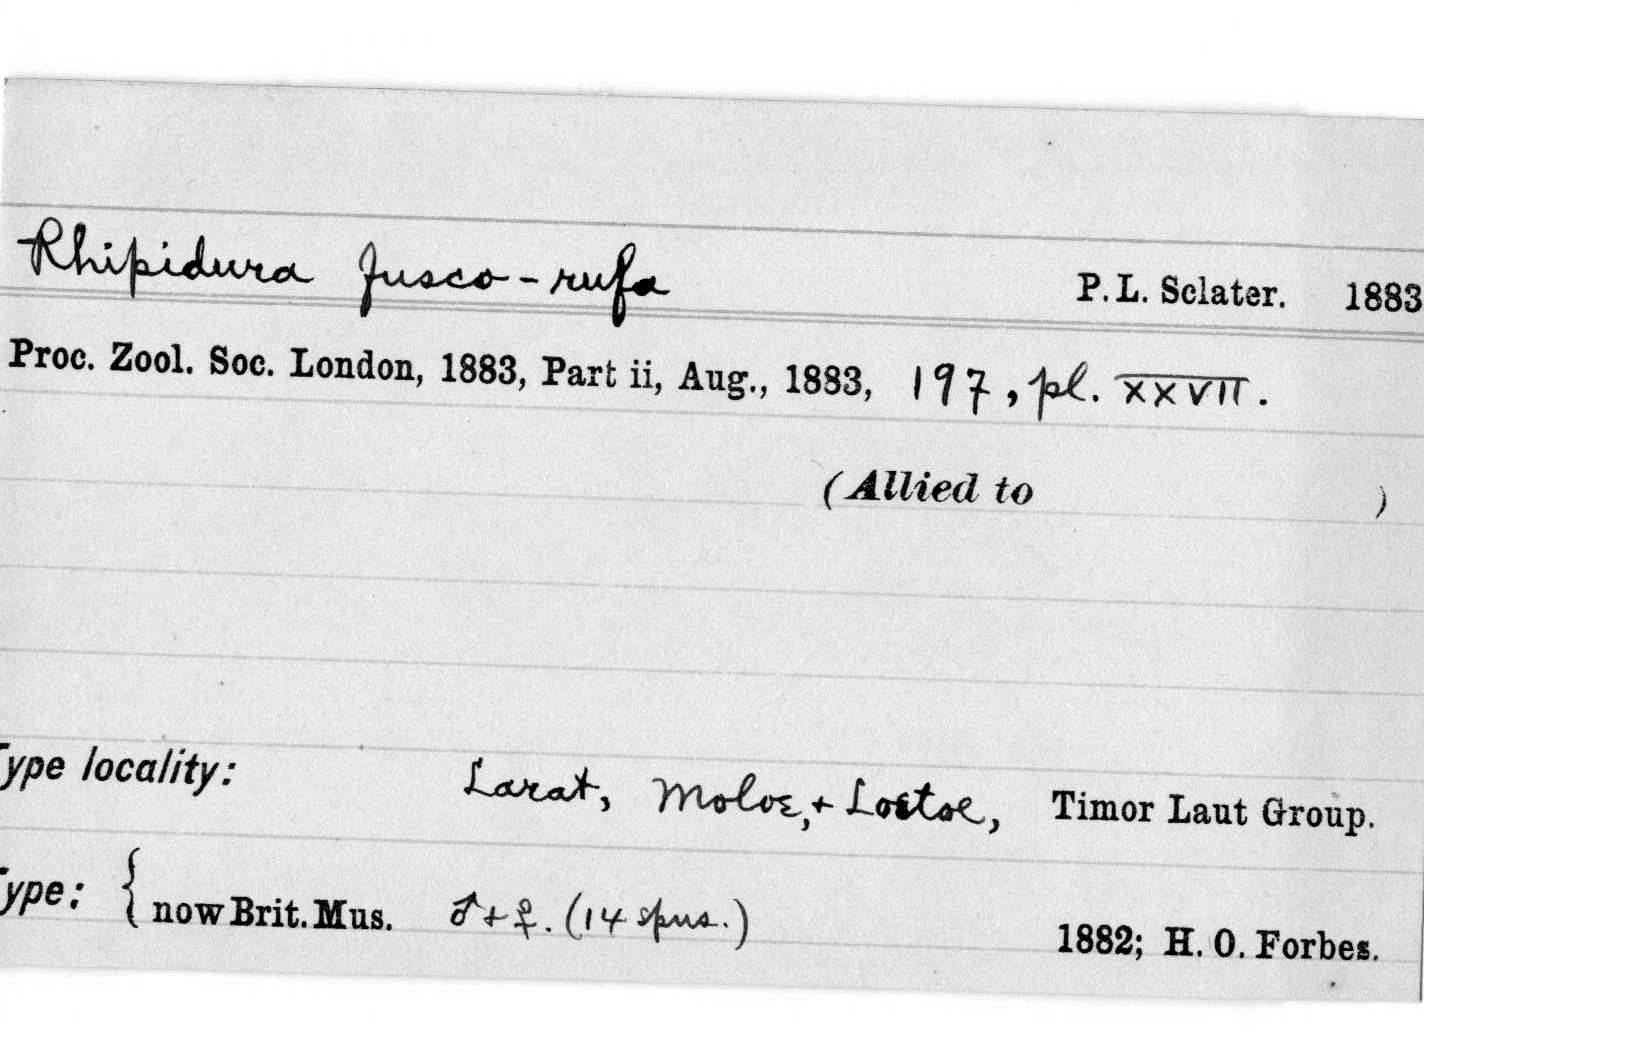 Rhipidura fusco-rufa P. L. Sclater. 1883
Proc. Zool. Soc. London, 1883, Part ii, Aug., 1883, 197, pl. XXVII.
(Allied to )
Type locality: Larat, Moloe, + Loetoe, Timor Laut Group.
Type: { now Brit. Mus. ♂ + ♀. (14 spms.) 1882; H. O. Forbes.